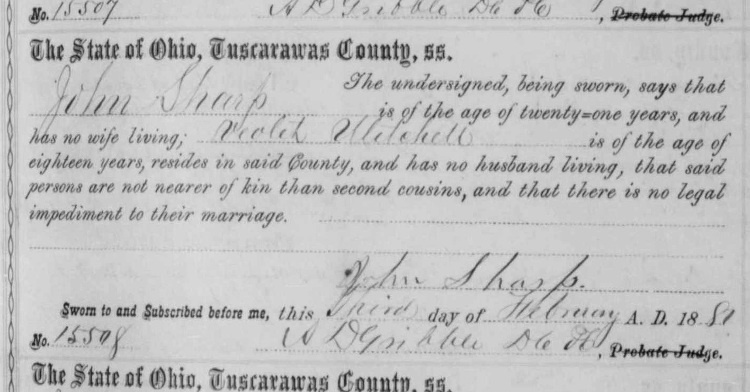 No. 15507 A D Gribble , Probate Judge.
The State of Ohio, Tuscarawas County, ss.
The undersigned, being sworn, says that
John Sharp is of the age of twenty=one years, and
has no wife living; Mitchell is of the age of
eighteen years, resides in said County, and has no husband living, that said
persons are not nearer of kin than second cousins, and that there is no legal
impediment to their marriage.
John Sharp.
Sworn to and Subscribed before me, this Third day of February A. D. 18
No. 15508 A D Gribble , Probate Judge.
The State of Ohio, Tuscarawas County, ss.